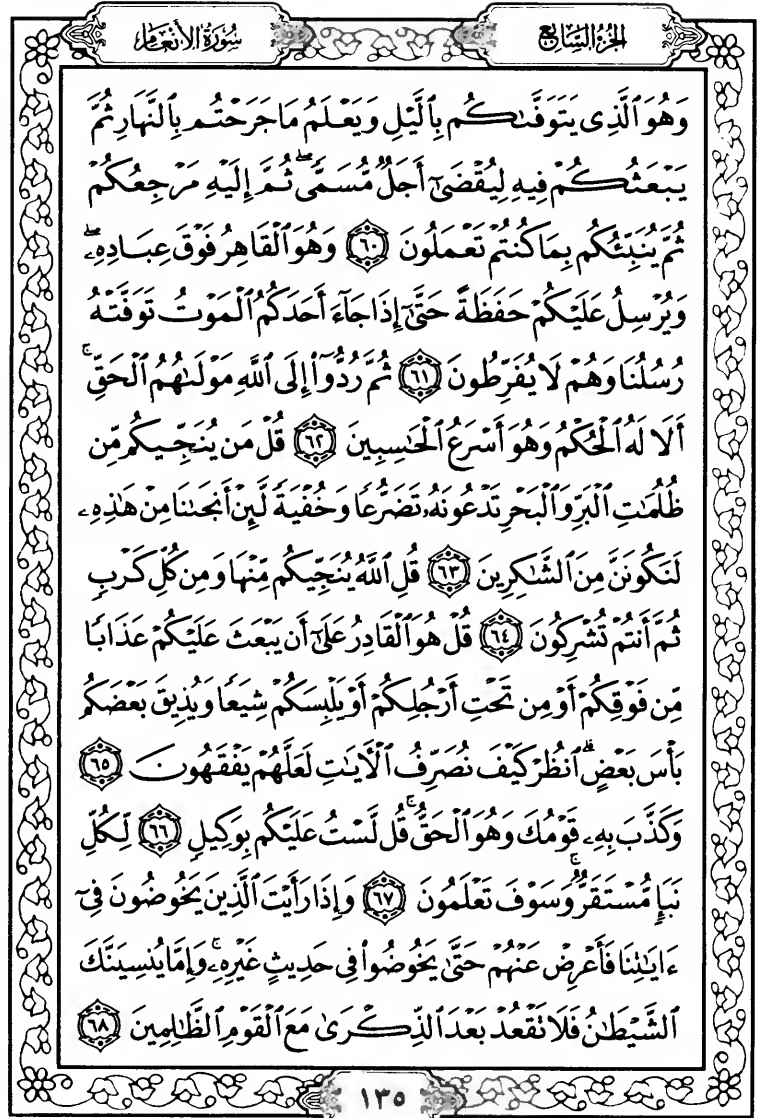 سُورَةُ الأَنْعَام
الجُزْءُ السَّابِع
وَهُوَ ٱلَّذِى يَتَوَفَّىٰكُم بِٱلَّيْلِ وَيَعْلَمُ مَا جَرَحْتُم بِٱلنَّهَارِ ثُمَّ
يَبْعَثُكُمْ فِيهِ لِيُقْضَىٰٓ أَجَلٌ مُّسَمًّى ۖ ثُمَّ إِلَيْهِ مَرْجِعُكُمْ
ثُمَّ يُنَبِّئُكُم بِمَا كُنتُمْ تَعْمَلُونَ ٦٠ وَهُوَ ٱلْقَاهِرُ فَوْقَ عِبَادِهِۦ ۖ
وَيُرْسِلُ عَلَيْكُمْ حَفَظَةً حَتَّىٰٓ إِذَا جَآءَ أَحَدَكُمُ ٱلْمَوْتُ تَوَفَّتْهُ
رُسُلُنَا وَهُمْ لَا يُفَرِّطُونَ ٦١ ثُمَّ رُدُّوٓا۟ إِلَى ٱللَّهِ مَوْلَىٰهُمُ ٱلْحَقِّ ۚ
أَلَا لَهُ ٱلْحُكْمُ وَهُوَ أَسْرَعُ ٱلْحَٰسِبِينَ ٦٢ قُلْ مَن يُنَجِّيكُم مِّن
ظُلُمَٰتِ ٱلْبَرِّ وَٱلْبَحْرِ تَدْعُونَهُۥ تَضَرُّعًا وَخُفْيَةً لَّئِنْ أَنجَىٰنَا مِنْ هَٰذِهِۦ
لَنَكُونَنَّ مِنَ ٱلشَّٰكِرِينَ ٦٣ قُلِ ٱللَّهُ يُنَجِّيكُم مِّنْهَا وَمِن كُلِّ كَرْبٍ
ثُمَّ أَنتُمْ تُشْرِكُونَ ٦٤ قُلْ هُوَ ٱلْقَادِرُ عَلَىٰٓ أَن يَبْعَثَ عَلَيْكُمْ عَذَابًا
مِّن فَوْقِكُمْ أَوْ مِن تَحْتِ أَرْجُلِكُمْ أَوْ يَلْبِسَكُمْ شِيَعًا وَيُذِيقَ بَعْضَكُم
بَأْسَ بَعْضٍ ۗ ٱنظُرْ كَيْفَ نُصَرِّفُ ٱلْءَايَٰتِ لَعَلَّهُمْ يَفْقَهُونَ ٦٥
وَكَذَّبَ بِهِۦ قَوْمُكَ وَهُوَ ٱلْحَقُّ ۚ قُل لَّسْتُ عَلَيْكُم بِوَكِيلٍ ٦٦ لِّكُلِّ
نَبَإٍ مُّسْتَقَرٌّ ۚ وَسَوْفَ تَعْلَمُونَ ٦٧ وَإِذَا رَأَيْتَ ٱلَّذِينَ يَخُوضُونَ فِىٓ
ءَايَٰتِنَا فَأَعْرِضْ عَنْهُمْ حَتَّىٰ يَخُوضُوا۟ فِى حَدِيثٍ غَيْرِهِۦ ۚ وَإِمَّا يُنسِيَنَّكَ
ٱلشَّيْطَٰنُ فَلَا تَقْعُدْ بَعْدَ ٱلذِّكْرَىٰ مَعَ ٱلْقَوْمِ ٱلظَّٰلِمِينَ ٦٨
١٣٥